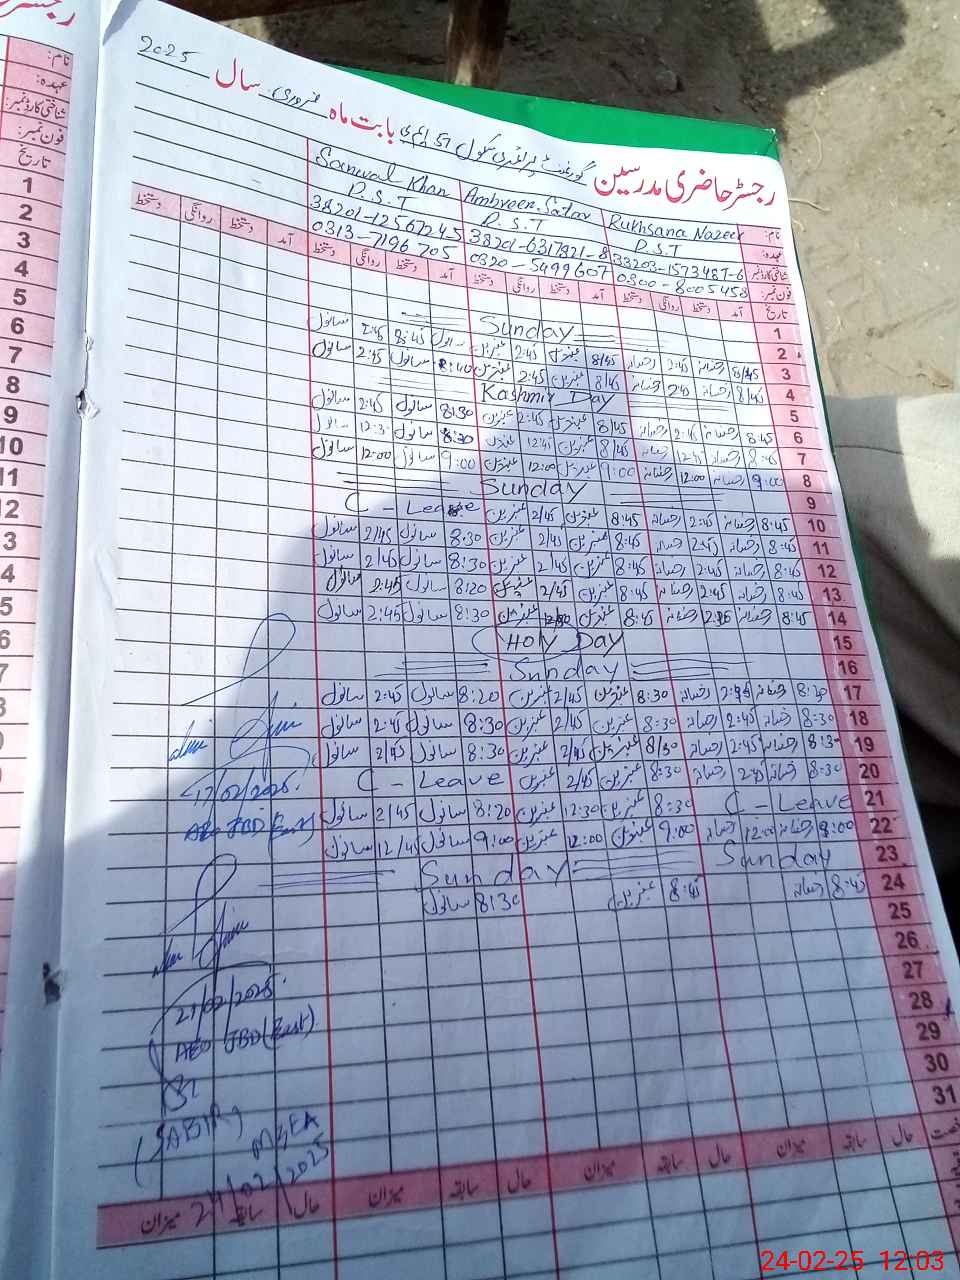 رجسٹر حاضری مدرسین گورنمنٹ پرائمری سکول 57 ایم ڈی بابت ماہ فروری سال 2025
نام: Rukhsana Nazeer Ambreen Satar Sanwal Khan
عہدہ: P.S.T P.S.T P.S.T
شناختی کارڈ نمبر: 38201-6317821-8 38201-12567245
فون نمبر: 0300-8005458 0320-5499607 0313-7196705
تاریخ آمد دستخط روانگی دستخط آمد دستخط روانگی دستخط آمد دستخط روانگی دستخط آمد دستخط روانگی دستخط
1
2 Sunday
3 8/45 رخسانہ 2:45 رخسانہ 8/45 عنبرین 2:45 عنبرین سانول 8:45 2:45 سانول
4 8/45 رخسانہ 2:45 رخسانہ 8/45 عنبرین 2:45 عنبرین 8:40 سانول 2:45 سانول
5 Kashmir Day
6 8:45 رخسانہ 2:45 رخسانہ 8/45 عنبرین 2:45 عنبرین 8:30 سانول 2:45 سانول
7 8:45 رخسانہ 12:45 رخسانہ 8/45 عنبرین 12:45 عنبرین 8:30 سانول 12:30 سانول
8 9:00 رخسانہ 12:00 رخسانہ 9:00 عنبرین 12:00 عنبرین 9:00 سانول 12:00 سانول
9 Sunday
10 8:45 رخسانہ 2:45 رخسانہ 8:45 عنبرین 2/45 عنبرین C - Leave
11 8:45 رخسانہ 2:45 رخسانہ 8:45 عنبرین 2/45 عنبرین 8:30 سانول 2/45 سانول
12 8:45 رخسانہ 2:45 رخسانہ 8:45 عنبرین 2/45 عنبرین 8:30 سانول 2/45 سانول
13 8:45 رخسانہ 2:45 رخسانہ 8:45 عنبرین 2/45 عنبرین 8:20 سانول 2:45 سانول
14 8:45 رخسانہ رخسانہ 8:45 عنبرین عنبرین 8:30 سانول 2:45 سانول
15 Holy Day
16 Sunday
17 8:30 رخسانہ 2:45 رخسانہ 8:30 عنبرین 2/45 عنبرین 8:20 سانول 2:45 سانول
18 8:30 رخسانہ 2:45 رخسانہ 8:30 عنبرین 2/45 عنبرین 8:30 سانول 2:45 سانول
19 8:30 رخسانہ 2:45 رخسانہ 8/30 عنبرین 2/45 عنبرین 8:30 سانول 2/45 سانول
20 8:30 رخسانہ 2:45 رخسانہ 8:30 عنبرین 2/45 عنبرین C - Leave
21 C - Leave 8:30 عنبرین 12:30 عنبرین 8:20 سانول 2/45 سانول
22 9:00 رخسانہ 12:00 رخسانہ 9:00 عنبرین 12:00 عنبرین 9:00 سانول 12/45 سانول
23 Sunday Sunday
24 8:45 رخسانہ 8:45 عنبرین 8:30 سانول
25
26
27
28
29
30
31
حال سابقہ میزان حال سابقہ میزان حال سابقہ میزان حال سابقہ میزان
17/02/2025.
AEO JBD (East)
21/02/2025.
AEO JBD (East)
(SABIR)
MEA
24/02/2025
نام:
عہدہ:
شناختی کارڈ نمبر:
فون نمبر:
تاریخ
1
2
3
4
5
6
7
8
9
10
11
12
3
4
5
6
7
24-02-25 12:03